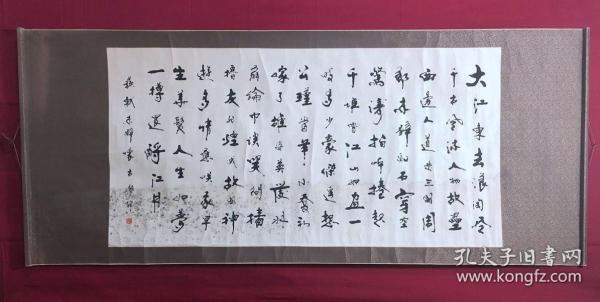 大江東去浪淘尽
千古風流人物故壘
西邊人道是三国周
郎赤壁乱石穿空
驚濤拍岸捲起
千堆雪江山如画一
時多少豪傑遥想
公瑾當年小喬初
嫁了雄姿英發羽
扇綸巾談笑間檣
櫓灰飛煙滅故国神
遊多情應笑我早
生華髮人生如夢
一樽還酹江月
蘇軾赤壁懷古
孔夫子旧书网
www.kongfz.com